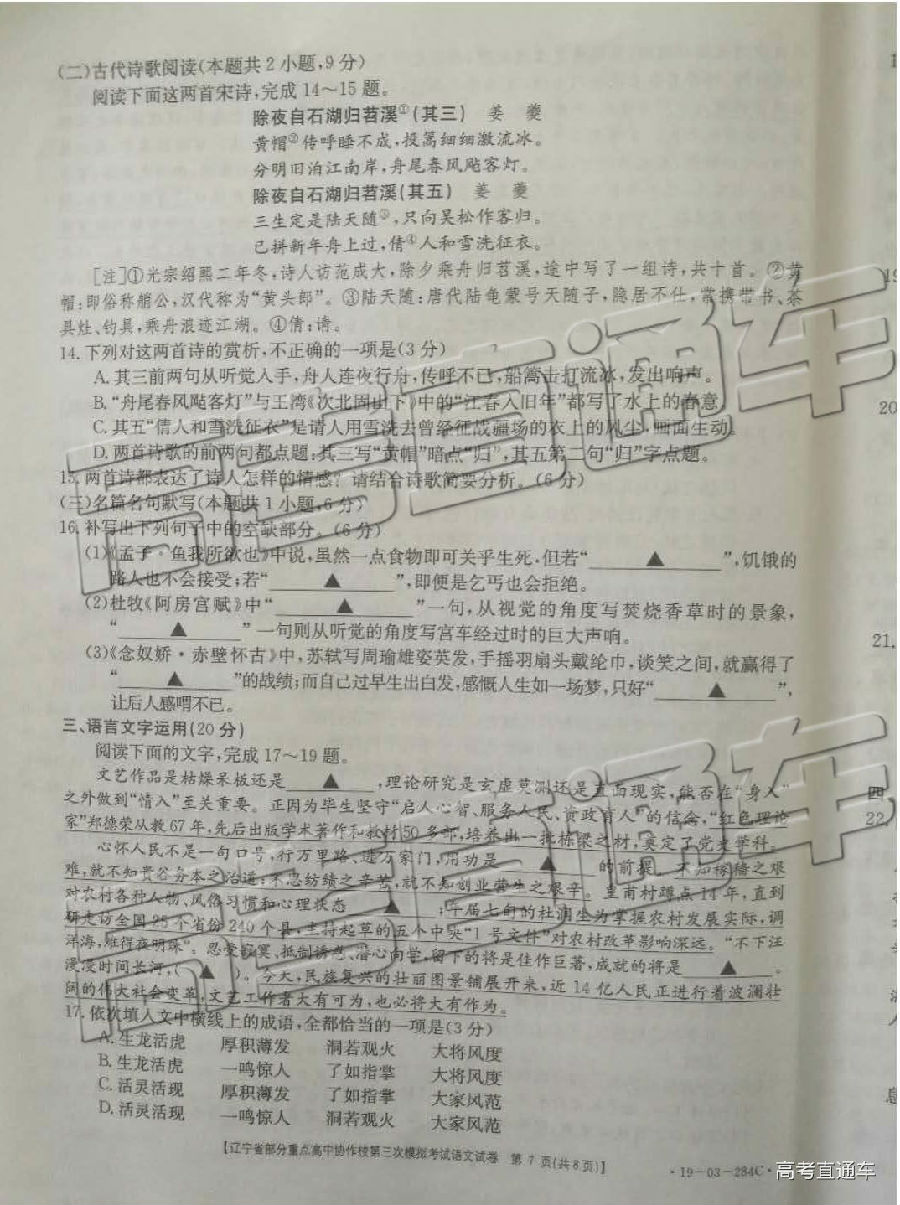 (二)古代诗歌阅读(本题共2小题,9分)
阅读下面这两首宋诗,完成14～15题。
除夜自石湖归苕溪①(其三) 姜 夔
黄帽②传呼睡不成,投篙细细激流冰。
分明旧泊江南岸,舟尾春风飐客灯。
除夜自石湖归苕溪(其五) 姜 夔
三生定是陆天随③,只向吴松作客归。
已拼新年舟上过,倩④人和雪洗征衣。
[注]①光宗绍熙二年冬,诗人访范成大,除夕乘舟归苕溪,途中写了一组诗,共十首。②黄
帽:即俗称艄公,汉代称为“黄头郎”。③陆天随:唐代陆龟蒙号天随子,隐居不仕,常携带书、茶
具灶、钓具,乘舟浪迹江湖。④倩:请。
14.下列对这两首诗的赏析,不正确的一项是(3分)
A.其三前两句从听觉入手,舟人连夜行舟,传呼不已,船篙击打流冰,发出响声。
B.“舟尾春风飐客灯”与王湾《次北固山下》中的“江春入旧年”都写了水上的春意。
C.其五“倩人和雪洗征衣”是请人用雪洗去曾经征战疆场的衣上的风尘,画面生动。
D.两首诗歌的前两句都点题:其三写“黄帽”暗点“归”,其五第二句“归”字点题。
15.两首诗都表达了诗人怎样的情感?请结合诗歌简要分析。(6分)
(三)名篇名句默写(本题共1小题,6分)
16.补写出下列句子中的空缺部分。(6分)
(1)《孟子·鱼我所欲也》中说,虽然一点食物即可关乎生死,但若“▲”,饥饿的
路人也不会接受;若“▲”,即便是乞丐也会拒绝。
(2)杜牧《阿房宫赋》中“▲”一句,从视觉的角度写焚烧香草时的景象,
“▲”一句则从听觉的角度写宫车经过时的巨大声响。
(3)《念奴娇·赤壁怀古》中,苏轼写周瑜雄姿英发,手摇羽扇头戴纶巾,谈笑之间,就赢得了
“▲”的战绩;而自己过早生出白发,感慨人生如一场梦,只好“▲”,
让后人感喟不已。
三、语言文字运用(20分)
阅读下面的文字,完成17～19题。
文艺作品是枯燥呆板还是▲,理论研究是玄虚臆测还是直面现实,能否在“身入”
之外做到“情入”至关重要。正因为毕生坚守“启人心智、服务人民、资政育人”的信念,“红色理论
家”郑德荣从教67年,先后出版学术著作和教材50多部,培养出一批栋梁之材,奠定了党史学科。
心怀人民不是一句口号,行万里路、进万家门,用功是▲的前提。不知稼穑之艰
难,就不知贵谷务本之治道;不思纺绩之辛苦,就不知创业营生之艰辛。皇甫村蹲点14年,直到
对农村各种人物、风俗习惯和心理状态▲;年届七旬的杜润生为掌握农村发展实际,调
研走访全国25个省份240个县,主持起草的五个中央“1号文件”对农村改革影响深远。“不下汪
洋海,难得夜明珠”。忍受寂寞、抵制诱惑、潜心向学,留下的将是佳作巨著,成就的将是▲。
漫漫时间长河,(▲)。今天,民族复兴的壮丽图景铺展开来,近14亿人民正进行着波澜壮
阔的伟大社会变革,文艺工作者大有可为,也必将大有作为。
17.依次填入文中横线上的成语,全都恰当的一项是(3分)
A.生龙活虎 厚积薄发 洞若观火 大将风度
B.生龙活虎 一鸣惊人 了如指掌 大将风度
C.活灵活现 厚积薄发 了如指掌 大家风范
D.活灵活现 一鸣惊人 洞若观火 大家风范
【辽宁省部分重点高中协作校第三次模拟考试语文试卷 第7页(共8页)】
·19-03-284C·
高考直通车
高考直通车
高考直通车
19
20
21.
四
22